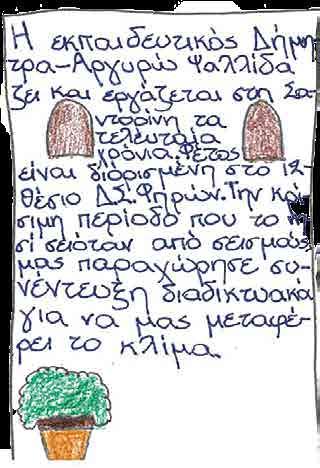 Η εκπαιδευτικός Δήμη-
τρα-Αργυρώ Ψαλλίδα
ζει και εργάζεται στη Σα-
ντορίνη τα
τελευταία
χρόνια. Φέτος
είναι διορισμένη στο 12-
θέσιο Δ.Σ. Φηρών. Την κρί-
σιμη περίοδο που το νη-
σί σειόταν από σεισμούς
μας παραχώρησε συ-
νέντευξη διαδικτυακά
για να μας μεταφέ-
ρει το κλίμα.